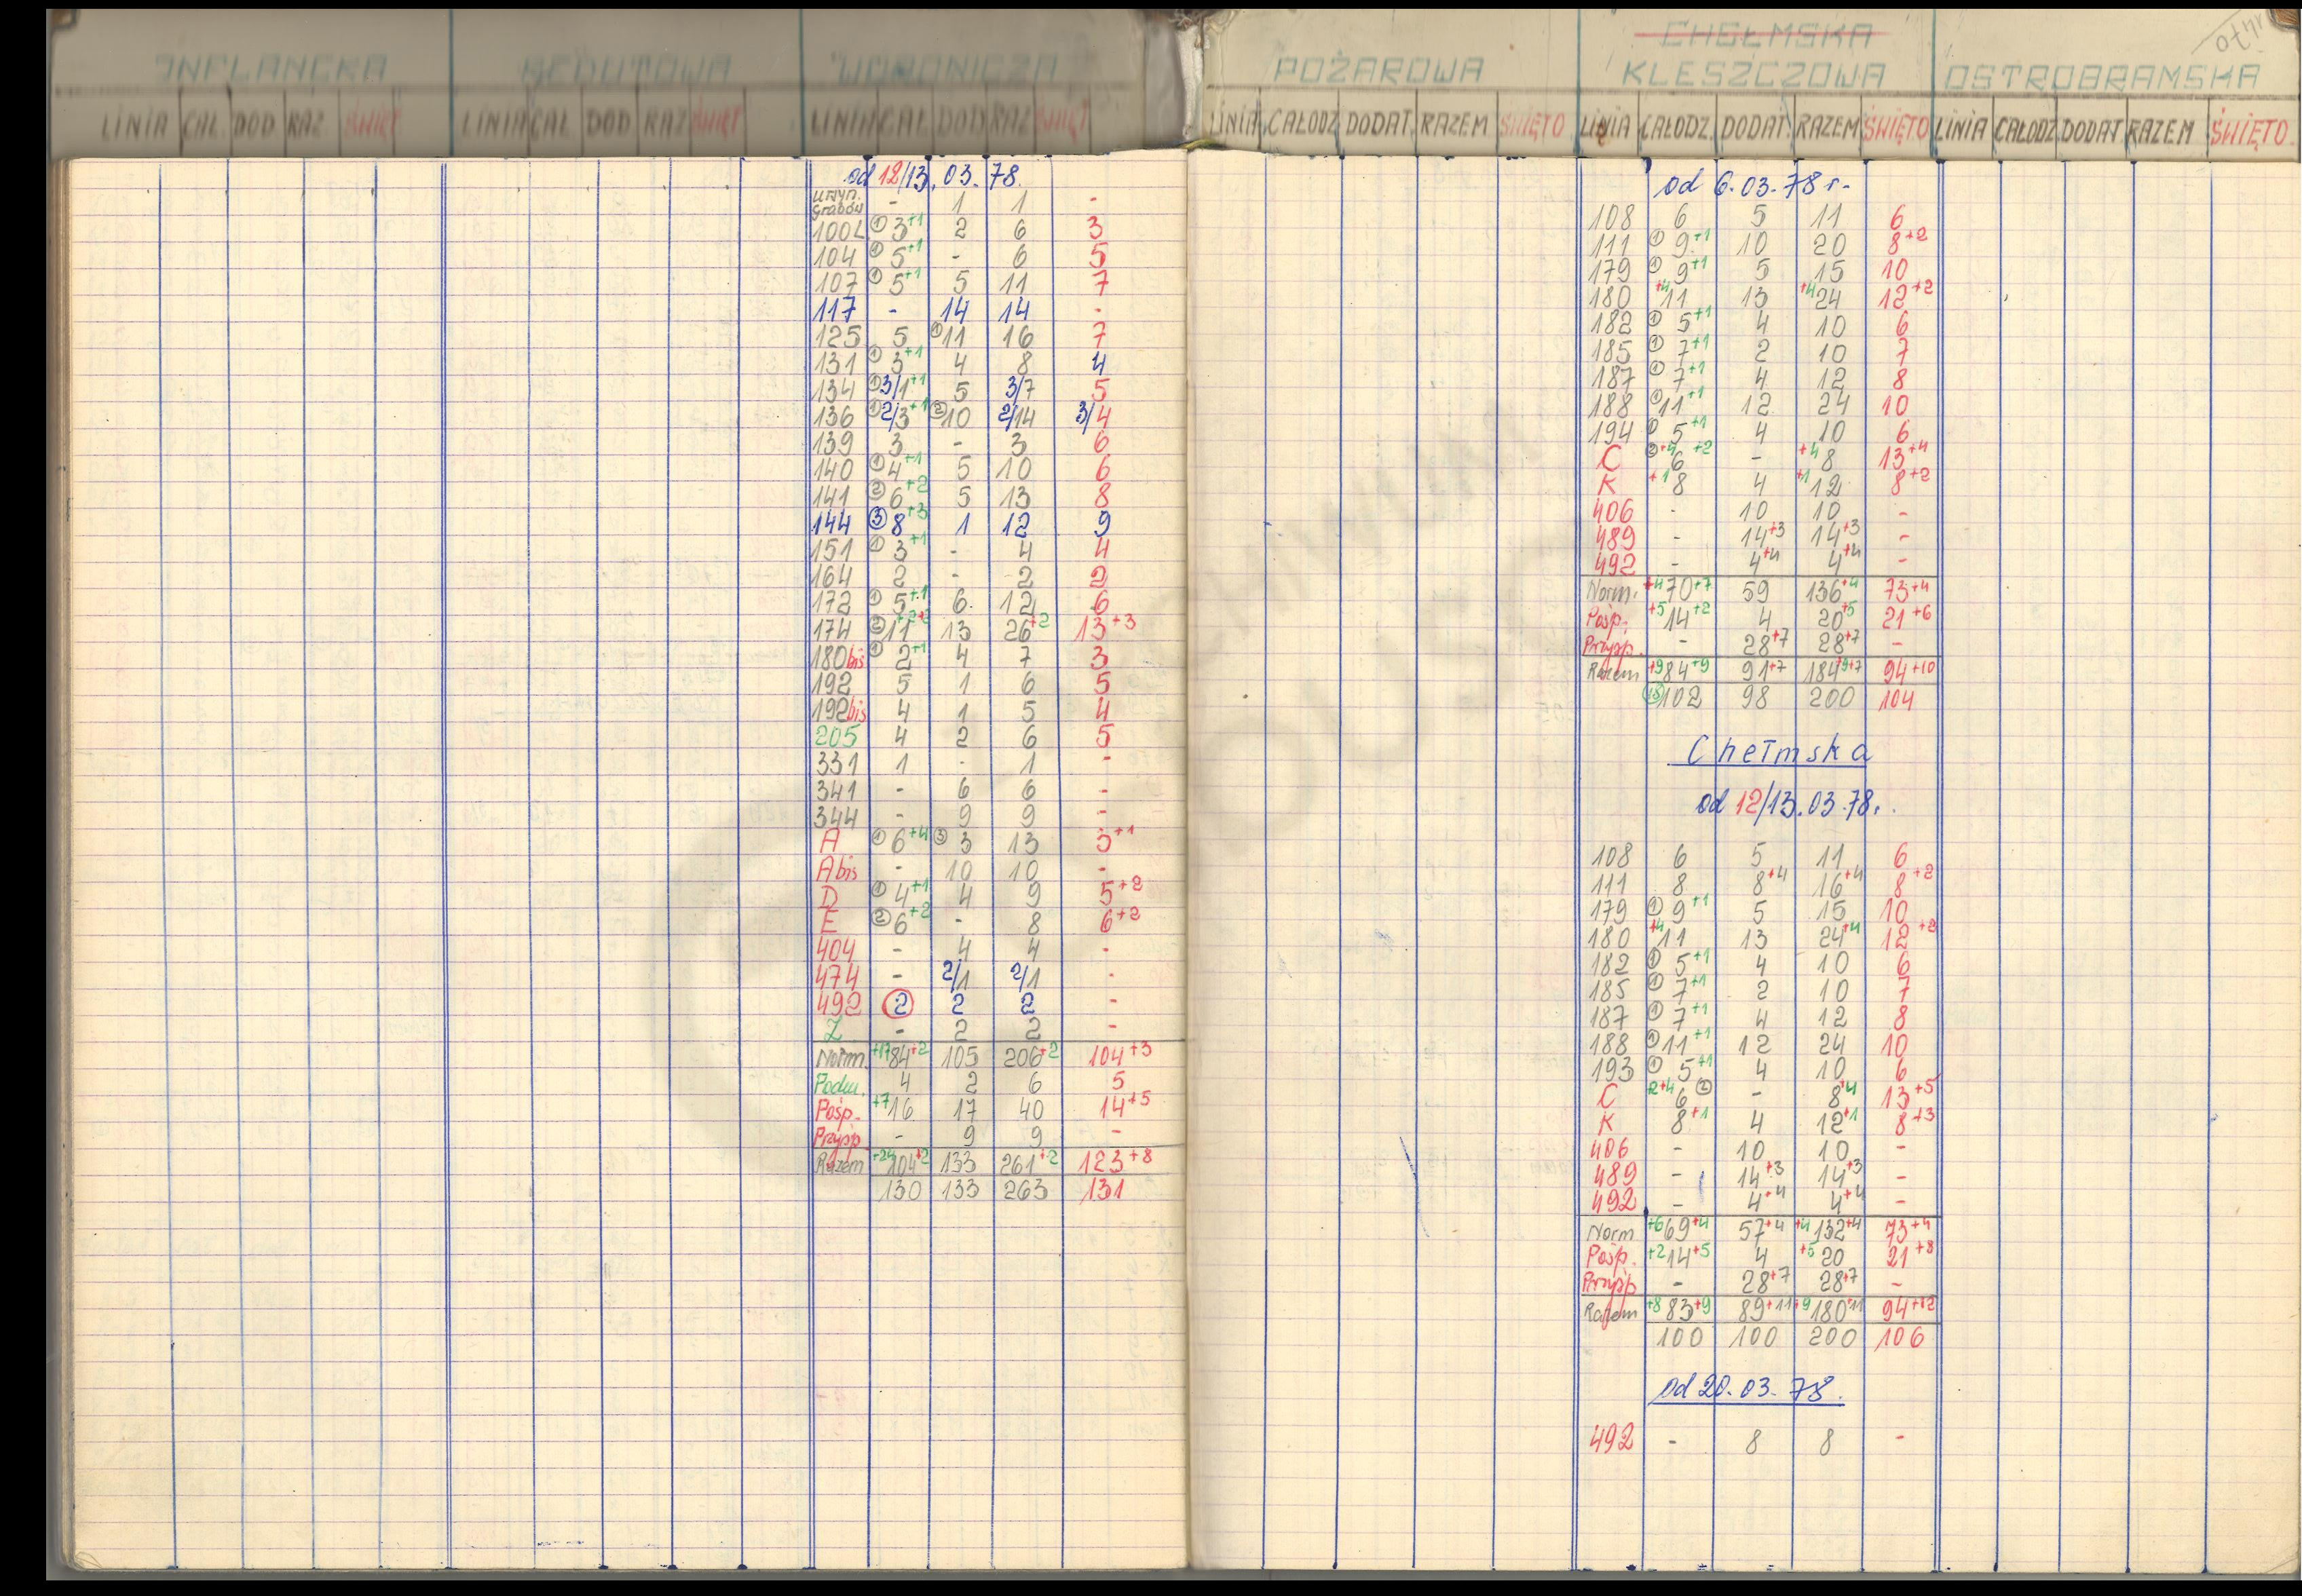 INFLANCKA REDUTOWA WORONICZA
LINIA CAŁ DOD RAZ ŚWIĘT LINIA CAŁ DOD RAZ ŚWIĘT LINIA CAŁ DOD RAZ ŚWIĘT
od 12/13.03.78.
Grabów - 1 1 -
100L ① 3+1 2 6 3
104 ① 5+1 - 6 5
107 ① 5+1 5 11 7
117 - 14 14 -
125 5 ①11 16 7
131 ① 3+1 4 8 4
134 ①3/1+1 5 3/7 5
136 ①2/3+1 ②10 2/14 3/4
139 3 - 3 6
140 ① 4+1 5 10 6
141 ② 6+2 5 13 8
144 ③ 8+3 1 12 9
151 ① 3+1 - 4 4
164 2 - 2 2
172 ① 5+1 6 12 6
174 ②11+2+2 13 26+2 13+3
180bis ① 2+1 4 7 3
192 5 1 6 5
192bis 4 1 5 4
205 4 2 6 5
331 1 - 1 -
341 - 6 6 -
344 - 9 9 -
A ① 6+4 ③ 3 13 3+1
Abis - 10 10 -
D ① 4+1 4 9 5+2
E ② 6+2 - 8 6+2
404 - 4 4 -
474 - 2/1 2/1 -
492 ② 2 2 -
Z - 2 2 -
Norm. +17 84+2 105 206+2 104+3
Podm. 4 2 6 5
Pośp. +7 16 17 40 14+5
Przysp. - 9 9 -
Razem +24 104+2 133 261+2 123+8
130 133 263 131
POŻAROWA CHEŁMSKA KLESZCZOWA OSTROBRAMSKA
LINIA CAŁODZ DODAT. RAZEM ŚWIĘTO LINIA CAŁODZ. DODAT. RAZEM ŚWIĘTO LINIA CAŁODZ DODAT RAZEM ŚWIĘTO
od 6.03.78 r.
108 6 5 11 6
111 ① 9+1 10 20 8+2
179 ① 9+1 5 15 10
180 +4 11 13 +4 24 12+2
182 ① 5+1 4 10 6
185 ① 7+1 2 10 7
187 ① 7+1 4 12 8
188 ① 11+1 12 24 10
194 ① 5+1 4 10 6
C ②+4 6 +2 - +4 8 13+4
K +1 8 4 +1 12 8+2
406 - 10 10 -
489 - 14+3 14+3 -
492 - 4+4 4+4 -
Norm. +4 70+7 59 136+4 73+4
Pośp. +5 14+2 4 20+5 21+6
Przysp. - 28+7 28+7 -
Razem +9 84+9 91+7 184+9+7 94+10
⑱102 98 200 104
Chełmska
od 12/13.03.78r.
108 6 5 11 6
111 8 8+4 16+4 8+2
179 ① 9+1 5 15 10
180 +4 11 13 24+4 12+2
182 ① 5+1 4 10 6
185 ① 7+1 2 10 7
187 ① 7+1 4 12 8
188 ① 11+1 12 24 10
193 ① 5+1 4 10 6
C 2+4 6 ② - 8+4 13+5
K 8+1 4 12+1 8+3
406 - 10 10 -
489 - 14+3 14+3 -
492 - 4+4 4+4 -
Norm +6 69+4 57+4 +4 132+4 73+4
Pośp. +2 14+5 4 +5 20 21+8
Przysp - 28+7 28+7 -
Razem +8 83+9 89+11 +9 180+11 94+12
100 100 200 106
od 20.03.78.
492 - 8 8 -